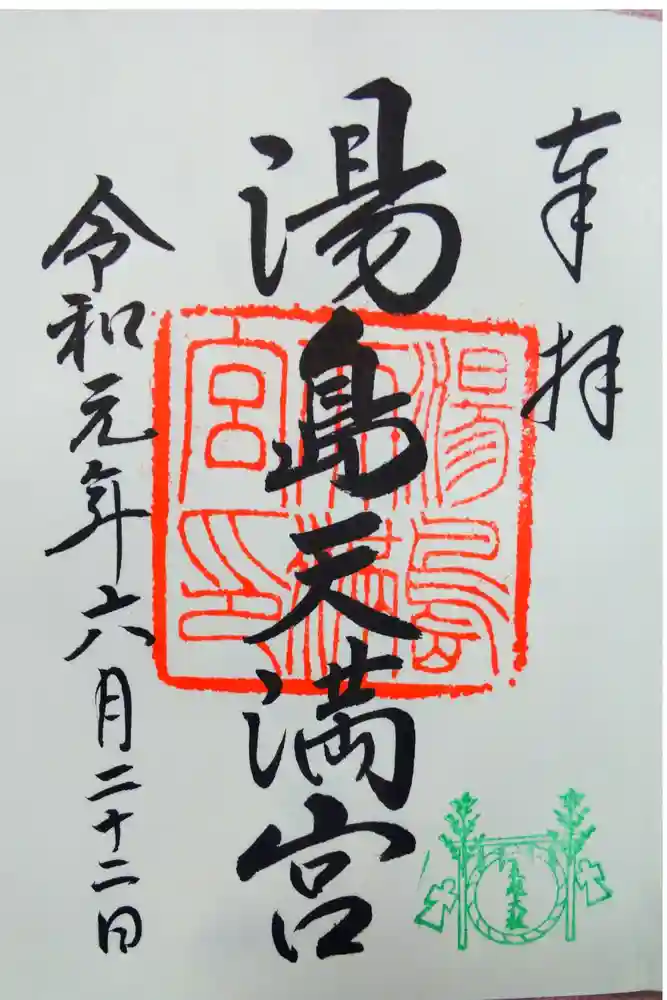 奉拝
湯島天満宮
令和元年六月二十二日
湯島天満宮印